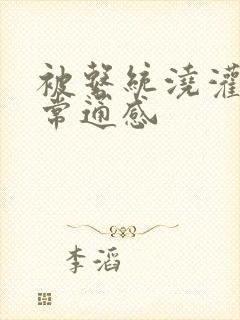 被系统浇灌
常通感
李滔